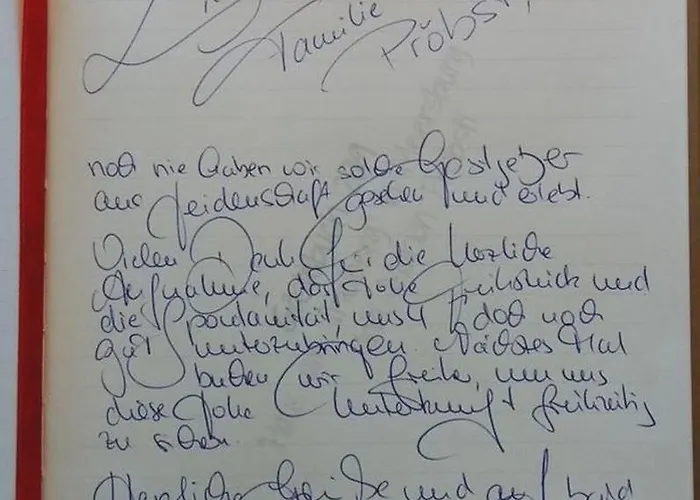 Familie Pröbst
noch nie haben wir solche Gastgeber
aus Leidenschaft gesehen und erlebt.
Vielen Dank für die herzliche
Aufnahme, das tolle Frühstück und
die Spontanität, uns 4 doch noch
gut unterzubringen. Nächstes Mal
buchen wir früher, um uns
diese tolle Unterkunft frühzeitig
zu sichern.
Herzliche Grüße und auf bald